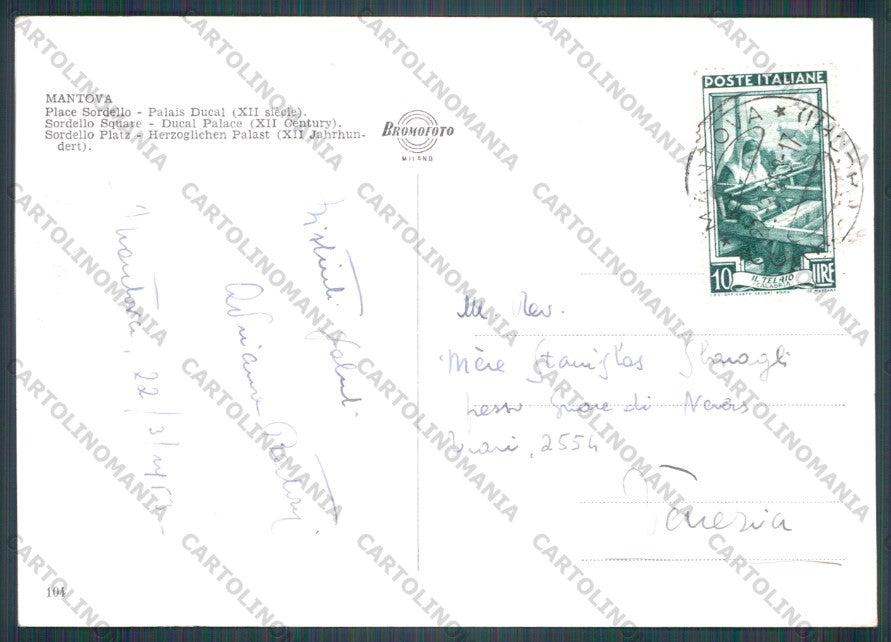 MANTOVA
Place Sordello - Palais Ducal (XII siècle).
Sordello Square - Ducal Palace (XII Century).
Sordello Platz - Herzoglichen Palast (XII Jahrhun-
dert).
BROMOFOTO
MILANO
POSTE ITALIANE
10 LIRE
IL TELAIO
CALABRIA
MANTOVA
Mantova, 22/3/
Distinti saluti
Adriana
M. Rev.
Mère Stanislas Sbaragli
presso Suore di Nevers
2554
Venezia
104
CARTOLINOMANIA